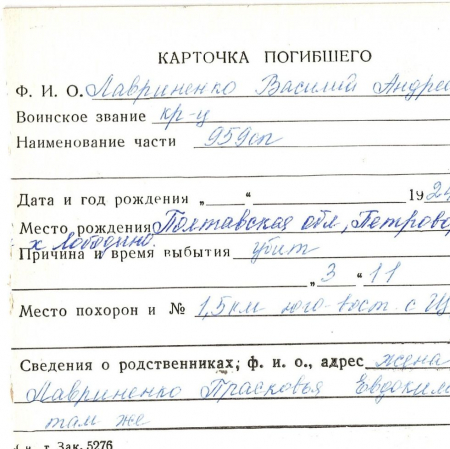 КАРТОЧКА ПОГИБШЕГО
Ф. И. О. Лавриненко Василий Андрее
Воинское звание кр-ц
Наименование части 959сп
Дата и год рождения „ “ 192
Место рождения Полтавская обл, Петрово
х Лободино.
Причина и время выбытия убит
„3 “ 11
Место похорон и № 1,5 км юго-вост. с
Сведения о родственниках; ф. и. о., адрес жена
Лавриненко Прасковья Евдоким
там же
т. Зак. 5276